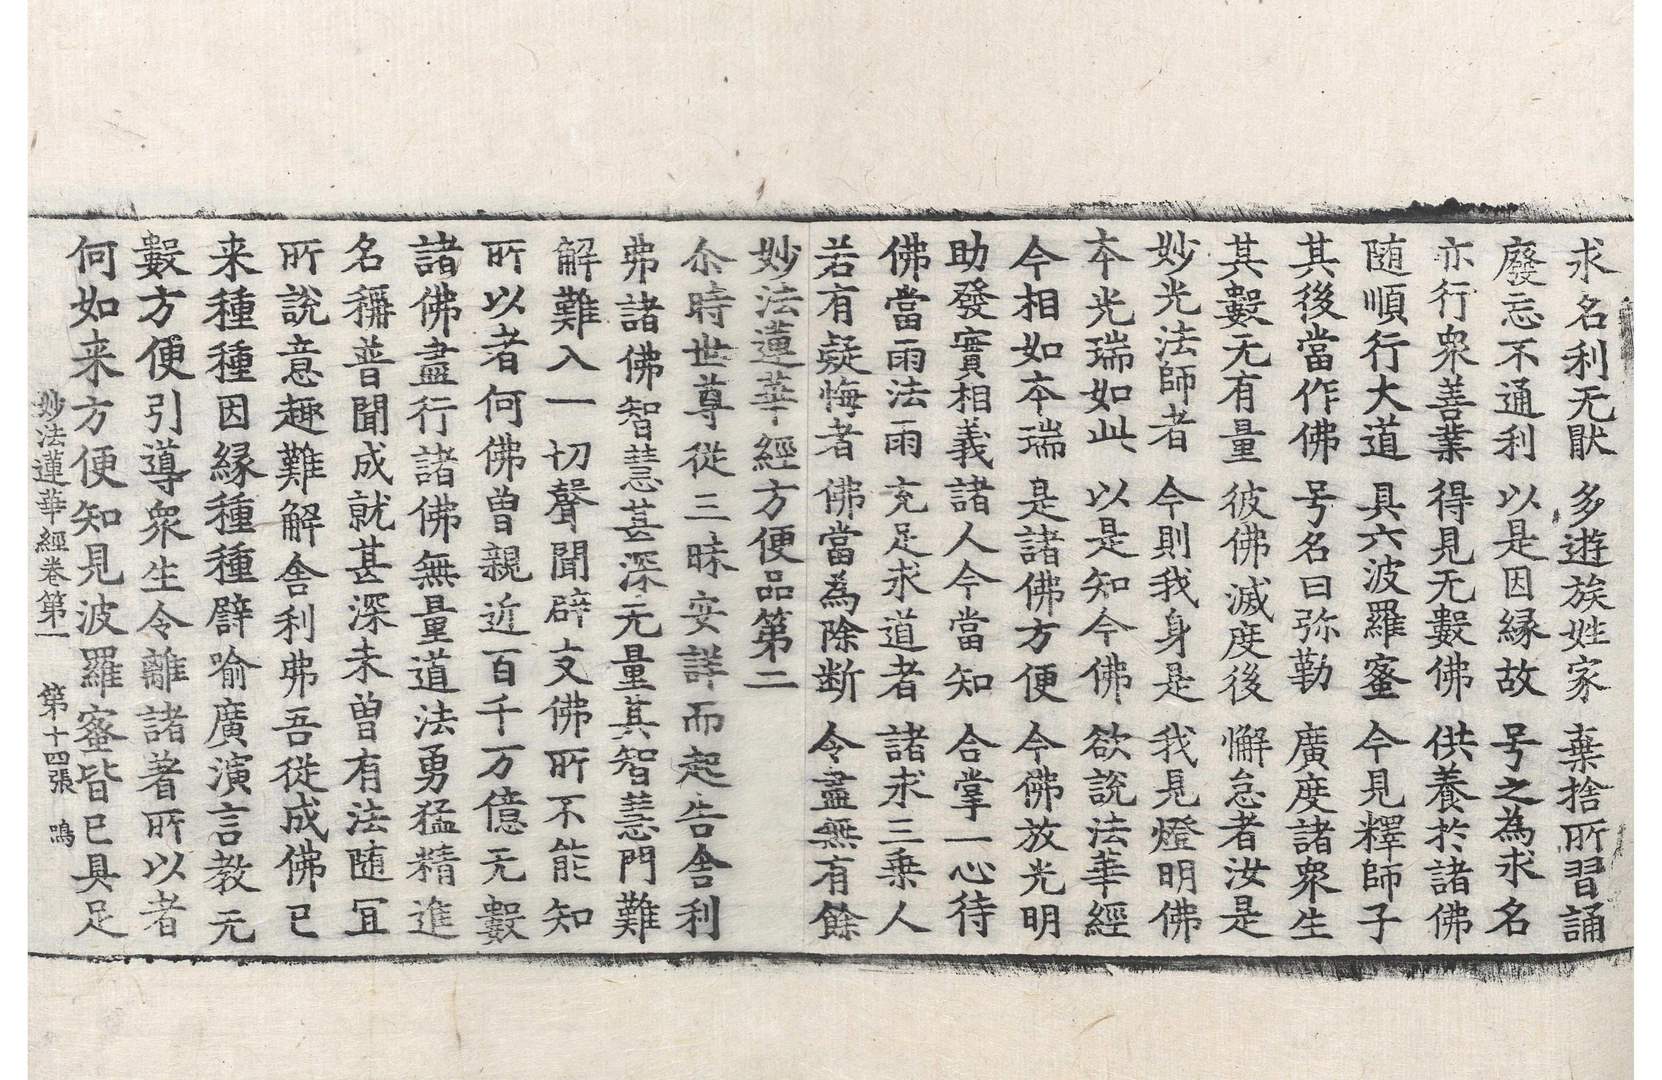 求名利无猒 多遊族姓家 棄捨所習誦
廢忘不通利 以是因縁故 号之為求名
亦行衆善業 得見无數佛 供養於諸佛
随順行大道 具六波羅蜜 今見釋師子
其後當作佛 号名曰弥勒 廣度諸衆生
其數无有量 彼佛滅度後 懈怠者汝是
妙光法師者 今則我身是 我見燈明佛
本光瑞如此 以是知今佛 欲說法華經
今相如本瑞 是諸佛方便 今佛放光明
助發實相義 諸人今當知 合掌一心待
佛當雨法雨 充足求道者 諸求三乗人
若有疑悔者 佛當為除断 令盡無有餘
妙法蓮華經方便品第二
尒時世尊從三昧安詳而起告舎利
弗諸佛智慧甚深无量其智慧門難
解難入一切聲聞辟支佛所不能知
所以者何佛曽親近百千万億无數
諸佛盡行諸佛無量道法勇猛精進
名稱普聞成就甚深未曽有法随冝
所說意趣難解舎利弗吾從成佛已
来種種因縁種種譬喻廣演言教无
數方便引導衆生令離諸著所以者
何如来方便知見波羅蜜皆已具足
妙法蓮華經卷第一 第十四張 鳴